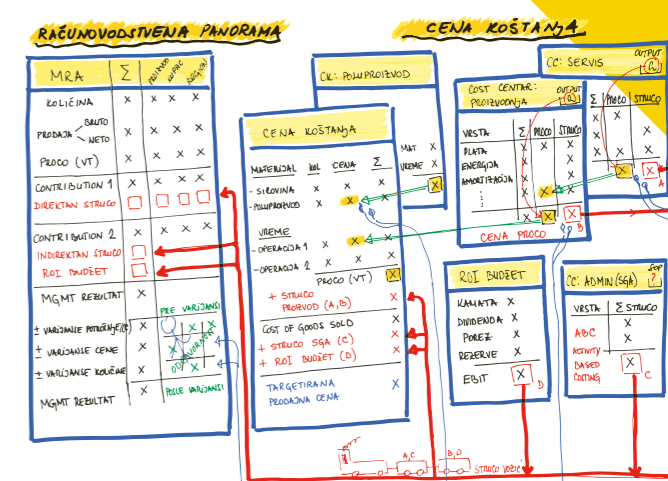 RAČUNOVODSTVENA PANORAMA
CENA KOŠTANJA
MRA
Σ
PROIZVOD
KUPAC
REGION
KOLIČINA X X X X
PRODAJA
BRUTO X X X X
NETO
PROCO (VT) X X X X
CONTRIBUTION 1 X X X X
DIREKTAN STRUCO
CONTRIBUTION 2 X X X X
INDIREKTAN STRUCO
ROI BUDŽET
MGMT REZULTAT X
PRE VARIJANSI
± VARIJANSE POTROŠNJE X
± VARIJANSE CENE X
± VARIJANSE KOLIČINE X
MGMT REZULTAT X
POSLE VARIJANSI
CK: POLUPROIZVOD
MAT X
VREME X
X
CENA KOŠTANJA
MATERIJAL KOL CENA Σ
- SIROVINA X X X
- POLUPROIZVOD X X X
VREME
- OPERACIJA 1 X X X
- OPERACIJA 2 X X X
PROCO (VT) X
+ STRUCO
PROIZVOD (A,B) X
COST OF GOODS SOLD X
+ STRUCO SGA (C) X
+ ROI BUDŽET (D) X
TARGETIRANA
PRODAJNA CENA X
COST CENTAR:
PROIZVODNJA
OUTPUT
VRSTA Σ PROCO STRUCO
PLATA
ENERGIJA
AMORTIZACIJA
X X X
B
CENA PROCO
CC: SERVIS
OUTPUT
Σ PROCO STRUCO
A
ROI BUDŽET
KAMATA X
DIVIDENDA X
POREZ X
REZERVE X
EBIT X
D
CC: ADMIN (SGA)
?
VRSTA Σ STRUCO
ABC
ACTIVITY
BASED
COSTING
X
C
A,C
B,D
STRUCO VOZIĆ